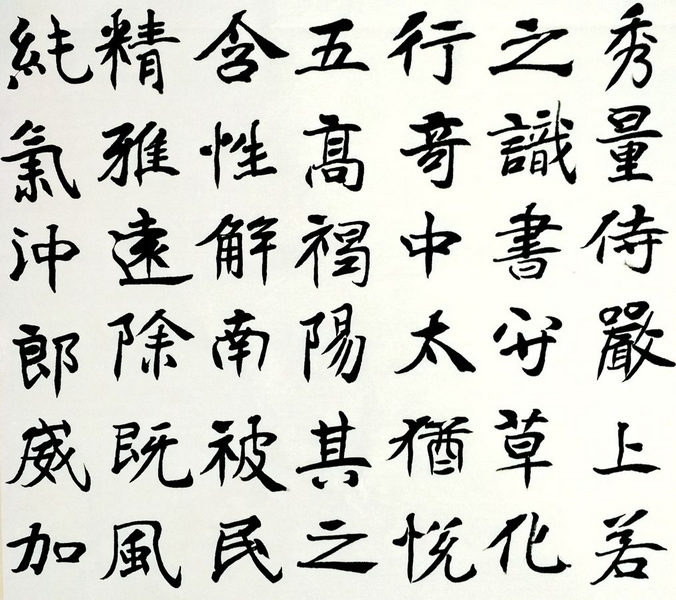 純精含五行之秀
氣雅性高奇識量
沖遠解褐中書侍
郎除南陽太守嚴
威既被其猶草上
加風民之悅化若